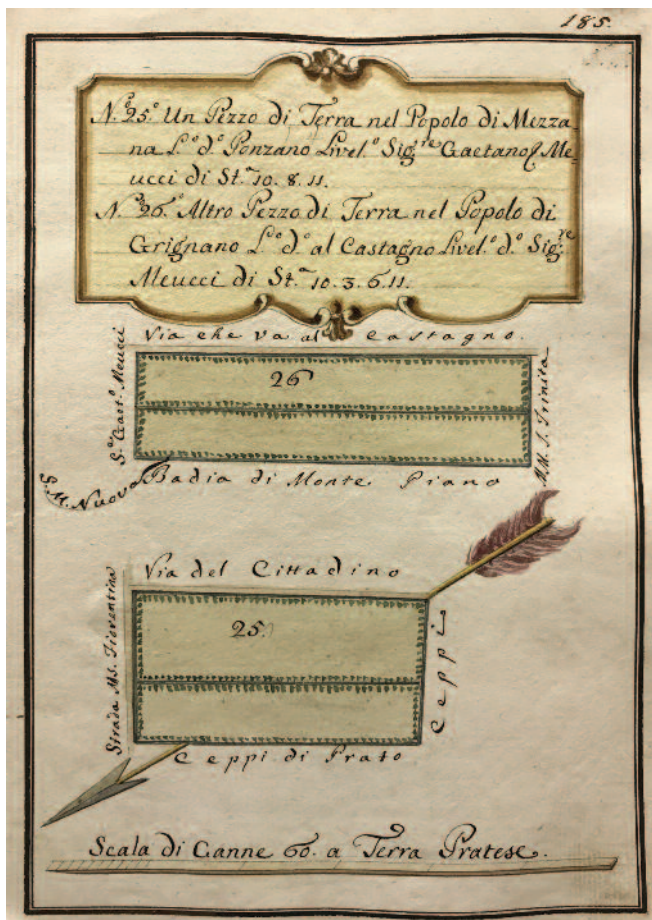 185.
N.º 25.º Un Pezzo di Terra nel Popolo di Mezza
na L.º d.º Ponzano Livel.º Sig.re Gaetano Me
ucci di St.a 10. 8. 11.
N.º 26.º Altro Pezzo di Terra nel Popolo di
Grignano L.º d.º al Castagno Livel.º d.º Sig.re
Meucci di St.a 10. 3. 6. 11.
Via che va al Castagno.
S.r Gaet.º Meucci
26
M.M. S. Trinita
S. M. Nuova
Badia di Monte Piano
Via del Cittadino
Strada MS. Fiorentina
25.
Ceppi
Ceppi di Prato
Scala di Canne 60. a Terra Pratese.